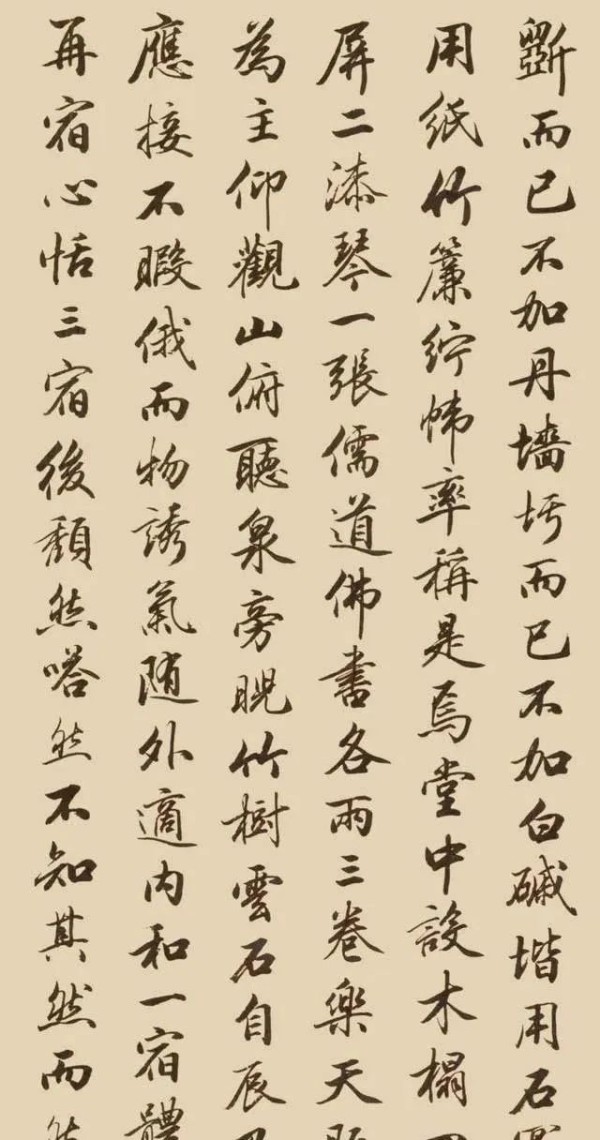 斵而已不加丹墻圬而已不加白磩堦用石
用紙竹簾紵幃率稱是焉堂中設木榻
屏二漆琴一張儒道佛書各兩三卷樂天
為主仰觀山俯聽泉旁睨竹樹雲石自辰
應接不暇俄而物誘氣随外適内和一宿體
再宿心恬三宿後頽然嗒然不知其然而